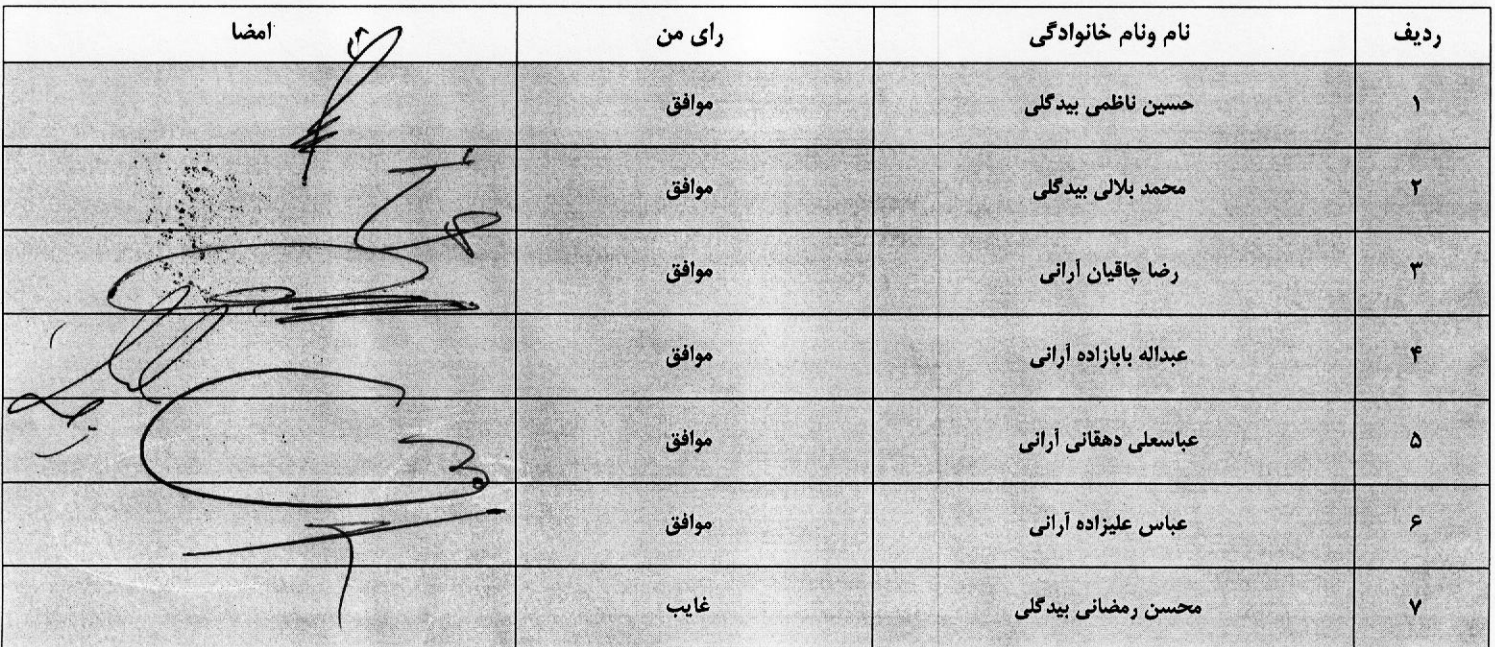 ردیف نام ونام خانوادگی رای من امضا
۱ حسین ناظمی بیدگلی موافق
۲ محمد بلالی بیدگلی موافق
۳ رضا چاقیان آرانی موافق
۴ عبداله بابازاده آرانی موافق
۵ عباسعلی دهقانی آرانی موافق
۶ عباس علیزاده آرانی موافق
۷ محسن رمضانی بیدگلی غایب